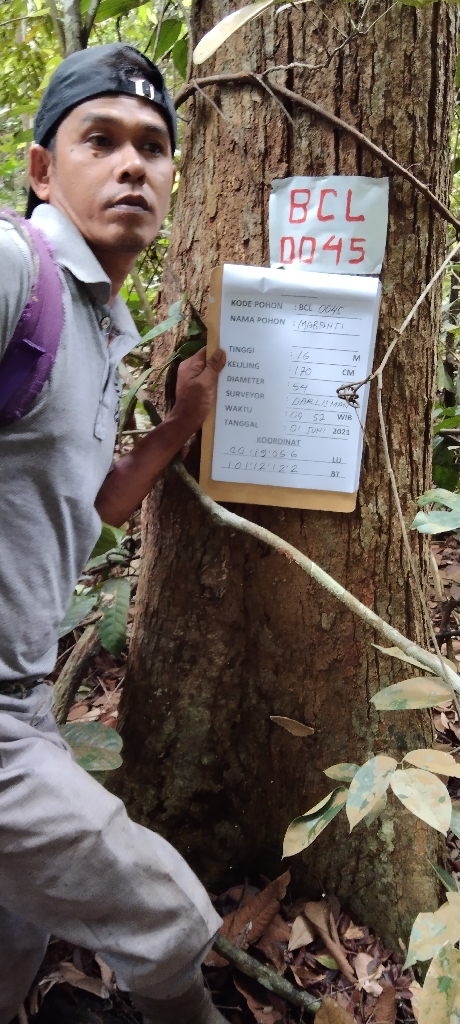 BCL
0045
KODE POHON : BCL 0045
NAMA POHON : MARANTI
TINGGI : 16 M
KELILING : 170 CM
DIAMETER : 54
SURVEYOR : DARLISMAN
WAKTU : 09 52 WIB
TANGGAL : 01 JUNI 2021
KOORDINAT
00.19.05 6 LU
101.12.12.2 BT